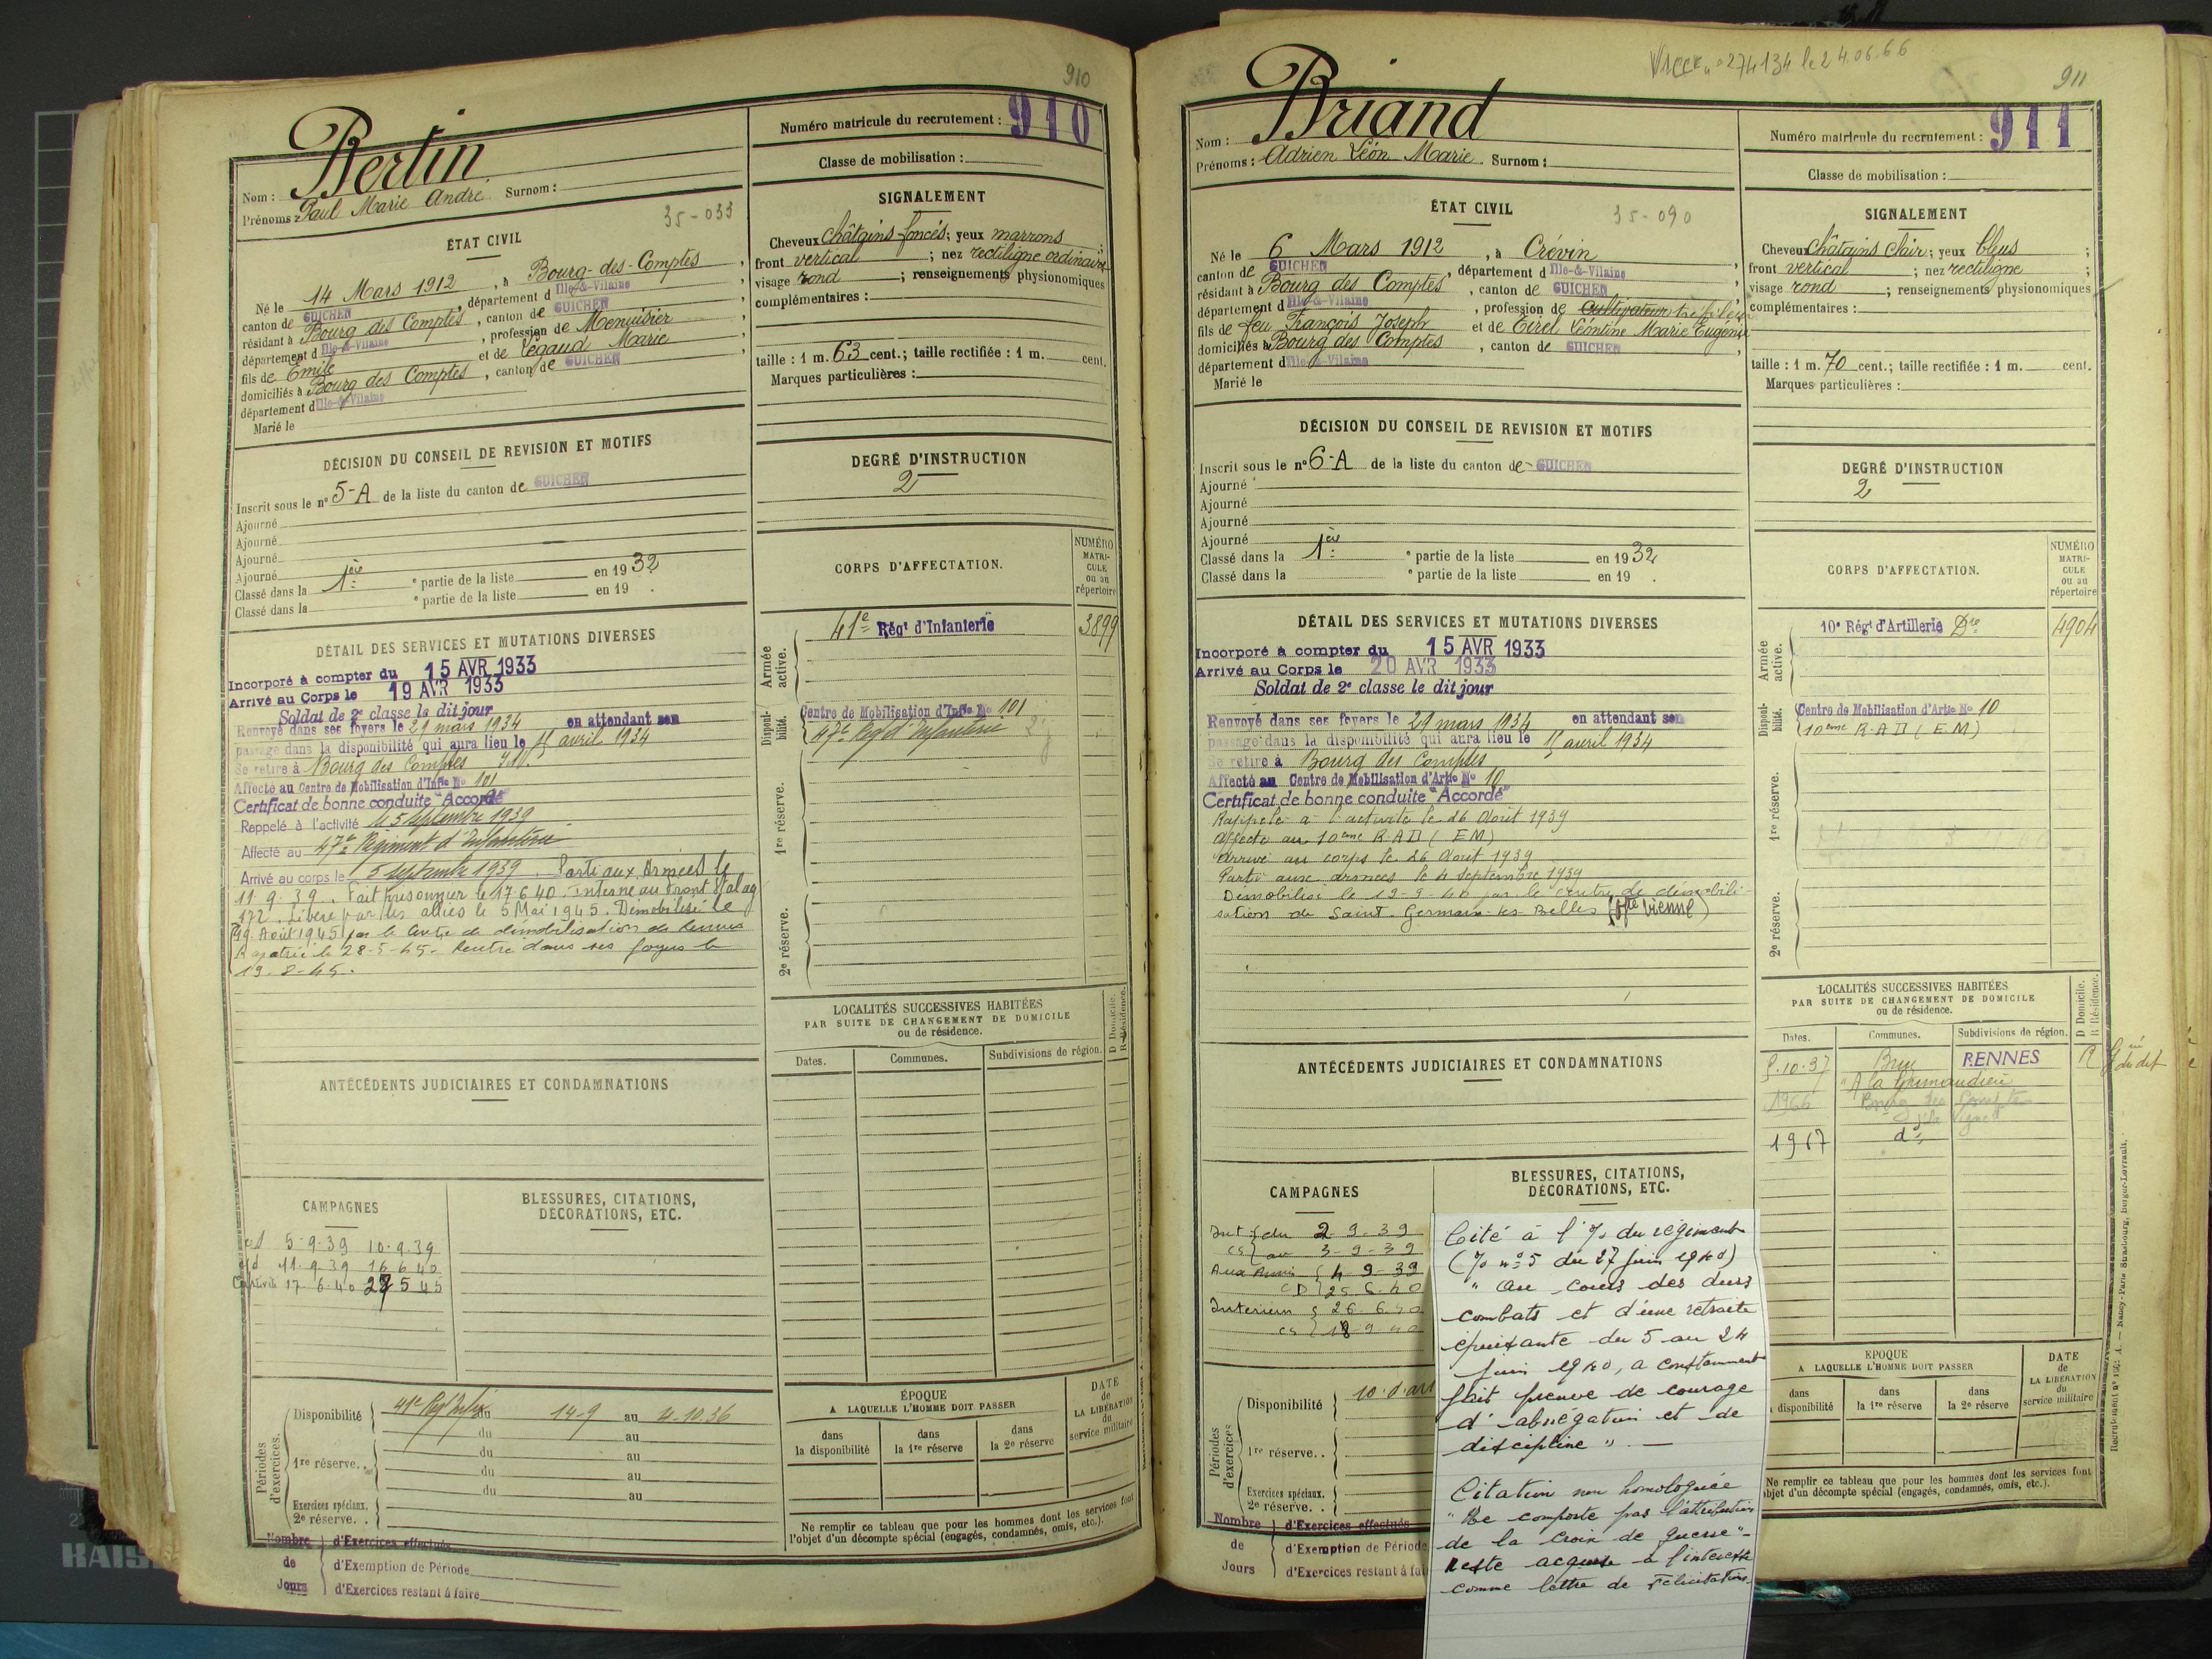 910
Nom : Bertin
Numéro matricule du recrutement : 910
Prénoms : Paul Marie André. Surnom :
Classe de mobilisation :
35-033
ÉTAT CIVIL
Né le 14 Mars 1912, à Bourg-des-Comptes,
canton de GUICHEN, département d Ille-&-Vilaine,
résidant à Bourg des Comptes, canton de GUICHEN,
département d Ille-&-Vilaine, profession de Menuisier,
fils de Emile et de Legaud Marie,
domiciliés à Bourg des Comptes, canton de GUICHEN,
département d Ille-&-Vilaine
Marié le
SIGNALEMENT
Cheveux châtains foncés; yeux marrons;
front vertical; nez rectiligne ordinaire
visage rond; renseignements physionomiques
complémentaires :
taille : 1 m. 63 cent.; taille rectifiée : 1 m. cent.
Marques particulières :
DÉCISION DU CONSEIL DE REVISION ET MOTIFS
Inscrit sous le n° 5-A de la liste du canton de GUICHEN
Ajourné
Ajourné
Ajourné
Ajourné
Classé dans la 1ère e partie de la liste en 1932
Classé dans la e partie de la liste en 19 .
DEGRÉ D'INSTRUCTION
2
DÉTAIL DES SERVICES ET MUTATIONS DIVERSES
Incorporé à compter du 15 AVR 1933
Arrivé au Corps le 19 AVR 1933
Soldat de 2e classe le dit jour
Renvoyé dans ses foyers le 29 mars 1934 en attendant son
passage dans la disponibilité qui aura lieu le 15 avril 1934
Se retire à Bourg des Comptes
Affecté au Centre de Mobilisation d'Inf<sup>ie</sup> N° 101
Certificat de bonne conduite "Accordé"
Rappelé à l'activité le 5 septembre 1939
Affecté au 47e Régiment d'Infanterie
Arrivé au corps le 5 septembre 1939. Parti aux Armées le
11.9.39. Fait prisonnier le 17 6 40. Interné au Front Stalag
172. Libéré par les alliés le 5 Mai 1945. Démobilisé le
19 Août 1945 par le Centre de démobilisation de Rennes
Rapatrié le 28-5-45. Rentre dans ses foyers le
19-8-45.
CORPS D'AFFECTATION.
NUMÉRO MATRICULE ou au répertoire
Armée active.
41e Régt d'Infanterie 3899
Disponibilité.
Centre de Mobilisation d'Infie No 101
47e Régt d'Infanterie
1re réserve.
2e réserve.
LOCALITÉS SUCCESSIVES HABITÉES
PAR SUITE DE CHANGEMENT DE DOMICILE
ou de résidence.
Dates. Communes. Subdivisions de région. D Domicile. R Résidence.
ANTÉCÉDENTS JUDICIAIRES ET CONDAMNATIONS
CAMPAGNES
5-9-39 10-9-39
11-9-39 16 6 40
Captivité 17-6-40 27 5 45
BLESSURES, CITATIONS,
DÉCORATIONS, ETC.
Périodes d'exercices.
Disponibilité 41e Régt Infie du 14-9 au 4-10-36
du au
1re réserve. . du au
du au
du au
Exercices spéciaux.
2e réserve. .
Nombre de Jours
d'Exercices effectués
d'Exemption de Période
d'Exercices restant à faire
ÉPOQUE
A LAQUELLE L'HOMME DOIT PASSER
dans la disponibilité dans la 1re réserve dans la 2e réserve
DATE de LA LIBÉRATION du service militaire
Ne remplir ce tableau que pour les hommes dont les services font
l'objet d'un décompte spécial (engagés, condamnés, omis, etc.).
n° 274134 le 24.06.66
911
Nom : Briand
Numéro matricule du recrutement : 911
Prénoms : Adrien Léon Marie. Surnom :
Classe de mobilisation :
ÉTAT CIVIL
35-090
Né le 6 Mars 1912, à Crévin,
canton de GUICHEN, département d Ille-&-Vilaine,
résidant à Bourg des Comptes, canton de GUICHEN,
département d Ille-&-Vilaine, profession de Cultivateur tréfileur
fils de feu François Joseph et de Tirel Léontine Marie Eugénie
domiciliés à Bourg des Comptes, canton de GUICHEN,
département d Ille-&-Vilaine
Marié le
SIGNALEMENT
Cheveux châtains clair; yeux bleus;
front vertical; nez rectiligne;
visage rond; renseignements physionomiques
complémentaires :
taille : 1 m. 70 cent.; taille rectifiée : 1 m. cent.
Marques particulières :
DÉCISION DU CONSEIL DE REVISION ET MOTIFS
Inscrit sous le n° 6-A de la liste du canton de GUICHEN
Ajourné
Ajourné
Ajourné
Ajourné
Classé dans la 1ère e partie de la liste en 1932
Classé dans la e partie de la liste en 19 .
DEGRÉ D'INSTRUCTION
2
DÉTAIL DES SERVICES ET MUTATIONS DIVERSES
Incorporé à compter du 15 AVR 1933
Arrivé au Corps le 20 AVR 1933
Soldat de 2e classe le dit jour
Renvoyé dans ses foyers le 29 mars 1934 en attendant son
passage dans la disponibilité qui aura lieu le 15 avril 1934
Se retire à Bourg des Comptes
Affecté au Centre de Mobilisation d'Artie No 10
Certificat de bonne conduite "Accordé"
Rappelé à l'activité le 26 Août 1939
Affecté au 10eme R.A.D (EM)
Arrivé au corps le 26 Août 1939
Parti aux armées le 4 Septembre 1939
Démobilisé le 19-9-40 par le centre de démobili-
sation de Saint-Germain-les-Belles (Hte Vienne)
CORPS D'AFFECTATION.
NUMÉRO MATRICULE ou au répertoire
Armée active.
10e Régt d'Artillerie Dre 4904
Disponibilité.
Centre de Mobilisation d'Artie No 10
10eme R.A.D (EM)
1re réserve.
2e réserve.
LOCALITÉS SUCCESSIVES HABITÉES
PAR SUITE DE CHANGEMENT DE DOMICILE
ou de résidence.
Dates. Communes. Subdivisions de région. D Domicile. R Résidence.
10-37 Bruz RENNES R
1966 Bourg des Comptes
1967 do
ANTÉCÉDENTS JUDICIAIRES ET CONDAMNATIONS
CAMPAGNES
Int du 2 9-39
CS au 3-9-39
Aux Armées 4 9-39
CD 25 6 40
Interieur 26 6 40
CS 18 9-40
BLESSURES, CITATIONS,
DÉCORATIONS, ETC.
Cité à l'O/. du régiment
(O/ n° 5 du 27 Juin 1940)
" Au cours des durs
combats et d'une retraite
épuisante du 5 au 24
Juin 1940, a constamment
fait preuve de courage
d'abnégation et de
discipline ". —
Citation non homologuée
"Ne comporte pas l'attribution
de la Croix de guerre"-
Reste acquise à l'intéressé
comme lettre de félicitations.
Périodes d'exercices
Disponibilité
1re réserve. .
Exercices spéciaux.
2e réserve. .
Nombre de Jours
d'Exercices effectués
d'Exemption de Période
d'Exercices restant à fai
ÉPOQUE
A LAQUELLE L'HOMME DOIT PASSER
dans disponibilité dans la 1re réserve dans la 2e réserve
DATE de LA LIBÉRATION du service militaire
Ne remplir ce tableau que pour les hommes dont les services font
objet d'un décompte spécial (engagés, condamnés, omis, etc.).